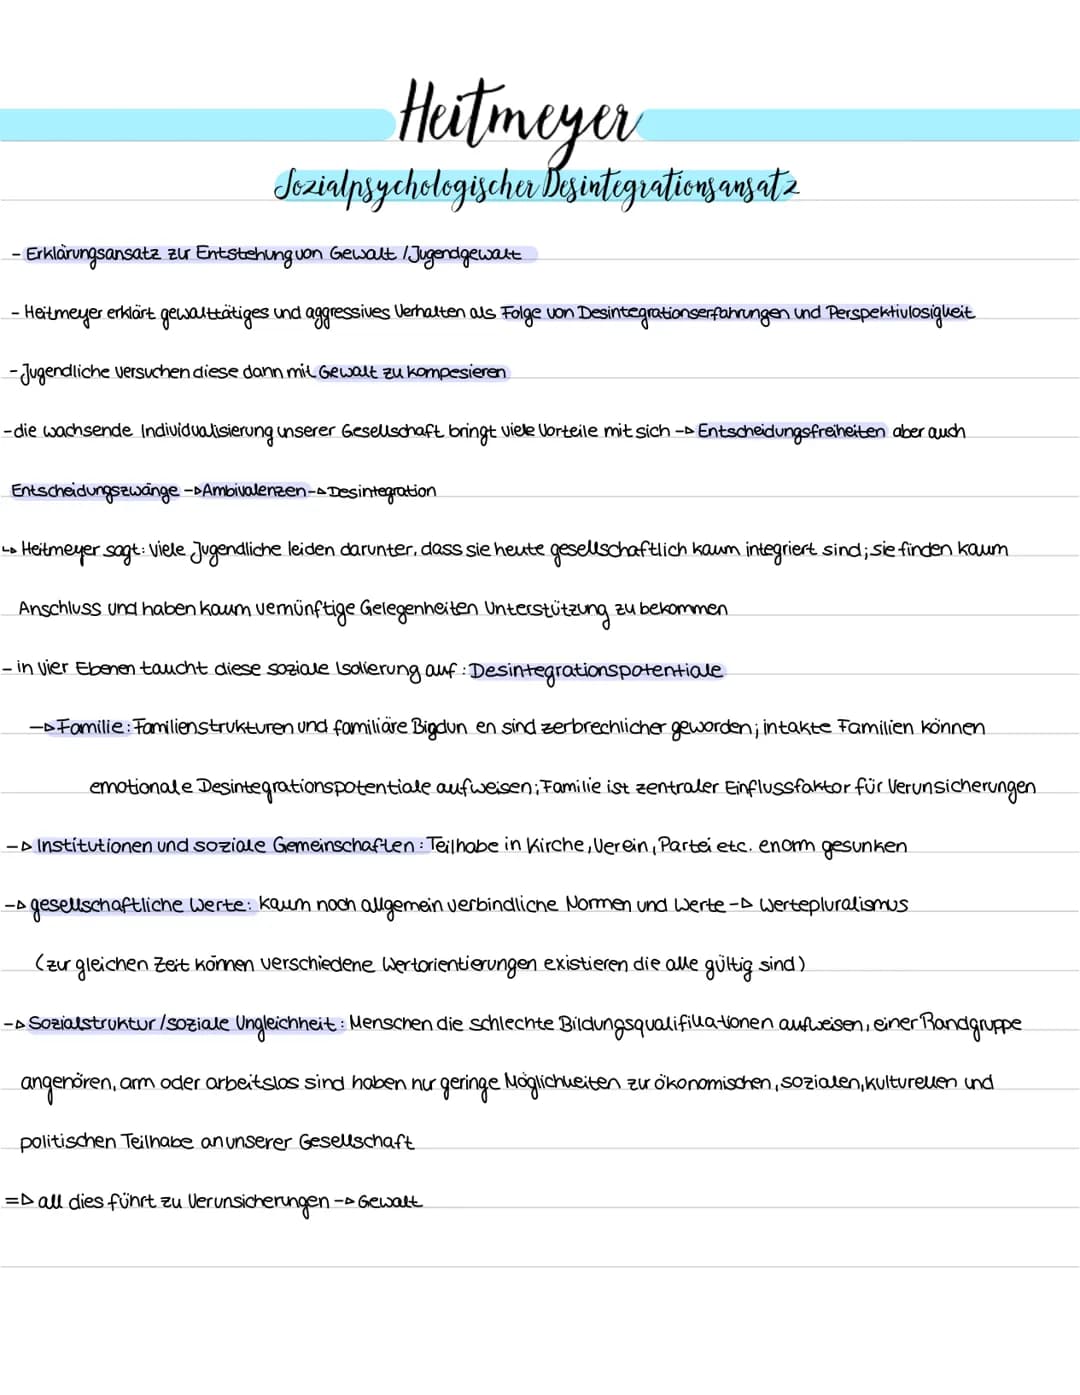 Heitmeyer
Sozialpsychologischer Desintegrationsansatz
- Erklärungsansatz zur Entstehung von Gewalt / Jugendgewalt
- Heitmeyer erklärt gewalttätiges und aggressives Verhalten als Folge von Desintegrationserfahrungen und Perspektivlosigkeit
- Jugendliche versuchen diese dann mit Gewalt zu kompesieren
- die wachsende Individualisierung unserer Gesellschaft bringt viele Vorteile mit sich -> Entscheidungsfreiheiten aber auch
Entscheidungszwänge -> Ambivalenzen -> Desintegration
↳ Heitmeyer sagt: viele Jugendliche leiden darunter, dass sie heute gesellschaftlich kaum integriert sind; sie finden kaum
Anschluss und haben kaum vernünftige Gelegenheiten Unterstützung zu bekommen
- in vier Ebenen taucht diese soziale Isolierung auf: Desintegrationspotentiale
-> Familie: Familienstrukturen und familiäre Bigdun en sind zerbrechlicher geworden; intakte Familien können
emotionale Desintegrationspotentiale aufweisen; Familie ist zentraler Einflussfaktor für Verunsicherungen
-> Institutionen und soziale Gemeinschaften: Teilhabe in Kirche, Verein, Partei etc. enorm gesunken
-> gesellschaftliche Werte: kaum noch allgemein verbindliche Normen und Werte -> Wertepluralismus
(zur gleichen Zeit können verschiedene Wertorientierungen existieren die alle gültig sind)
-> Sozialstruktur / soziale Ungleichheit: Menschen die schlechte Bildungsqualifikationen aufweisen, einer Randgruppe
angehören, arm oder arbeitslos sind haben nur geringe Möglichkeiten zur ökonomischen, sozialen, kulturellen und
politischen Teilhabe an unserer Gesellschaft
=> all dies führt zu Verunsicherungen -> Gewalt